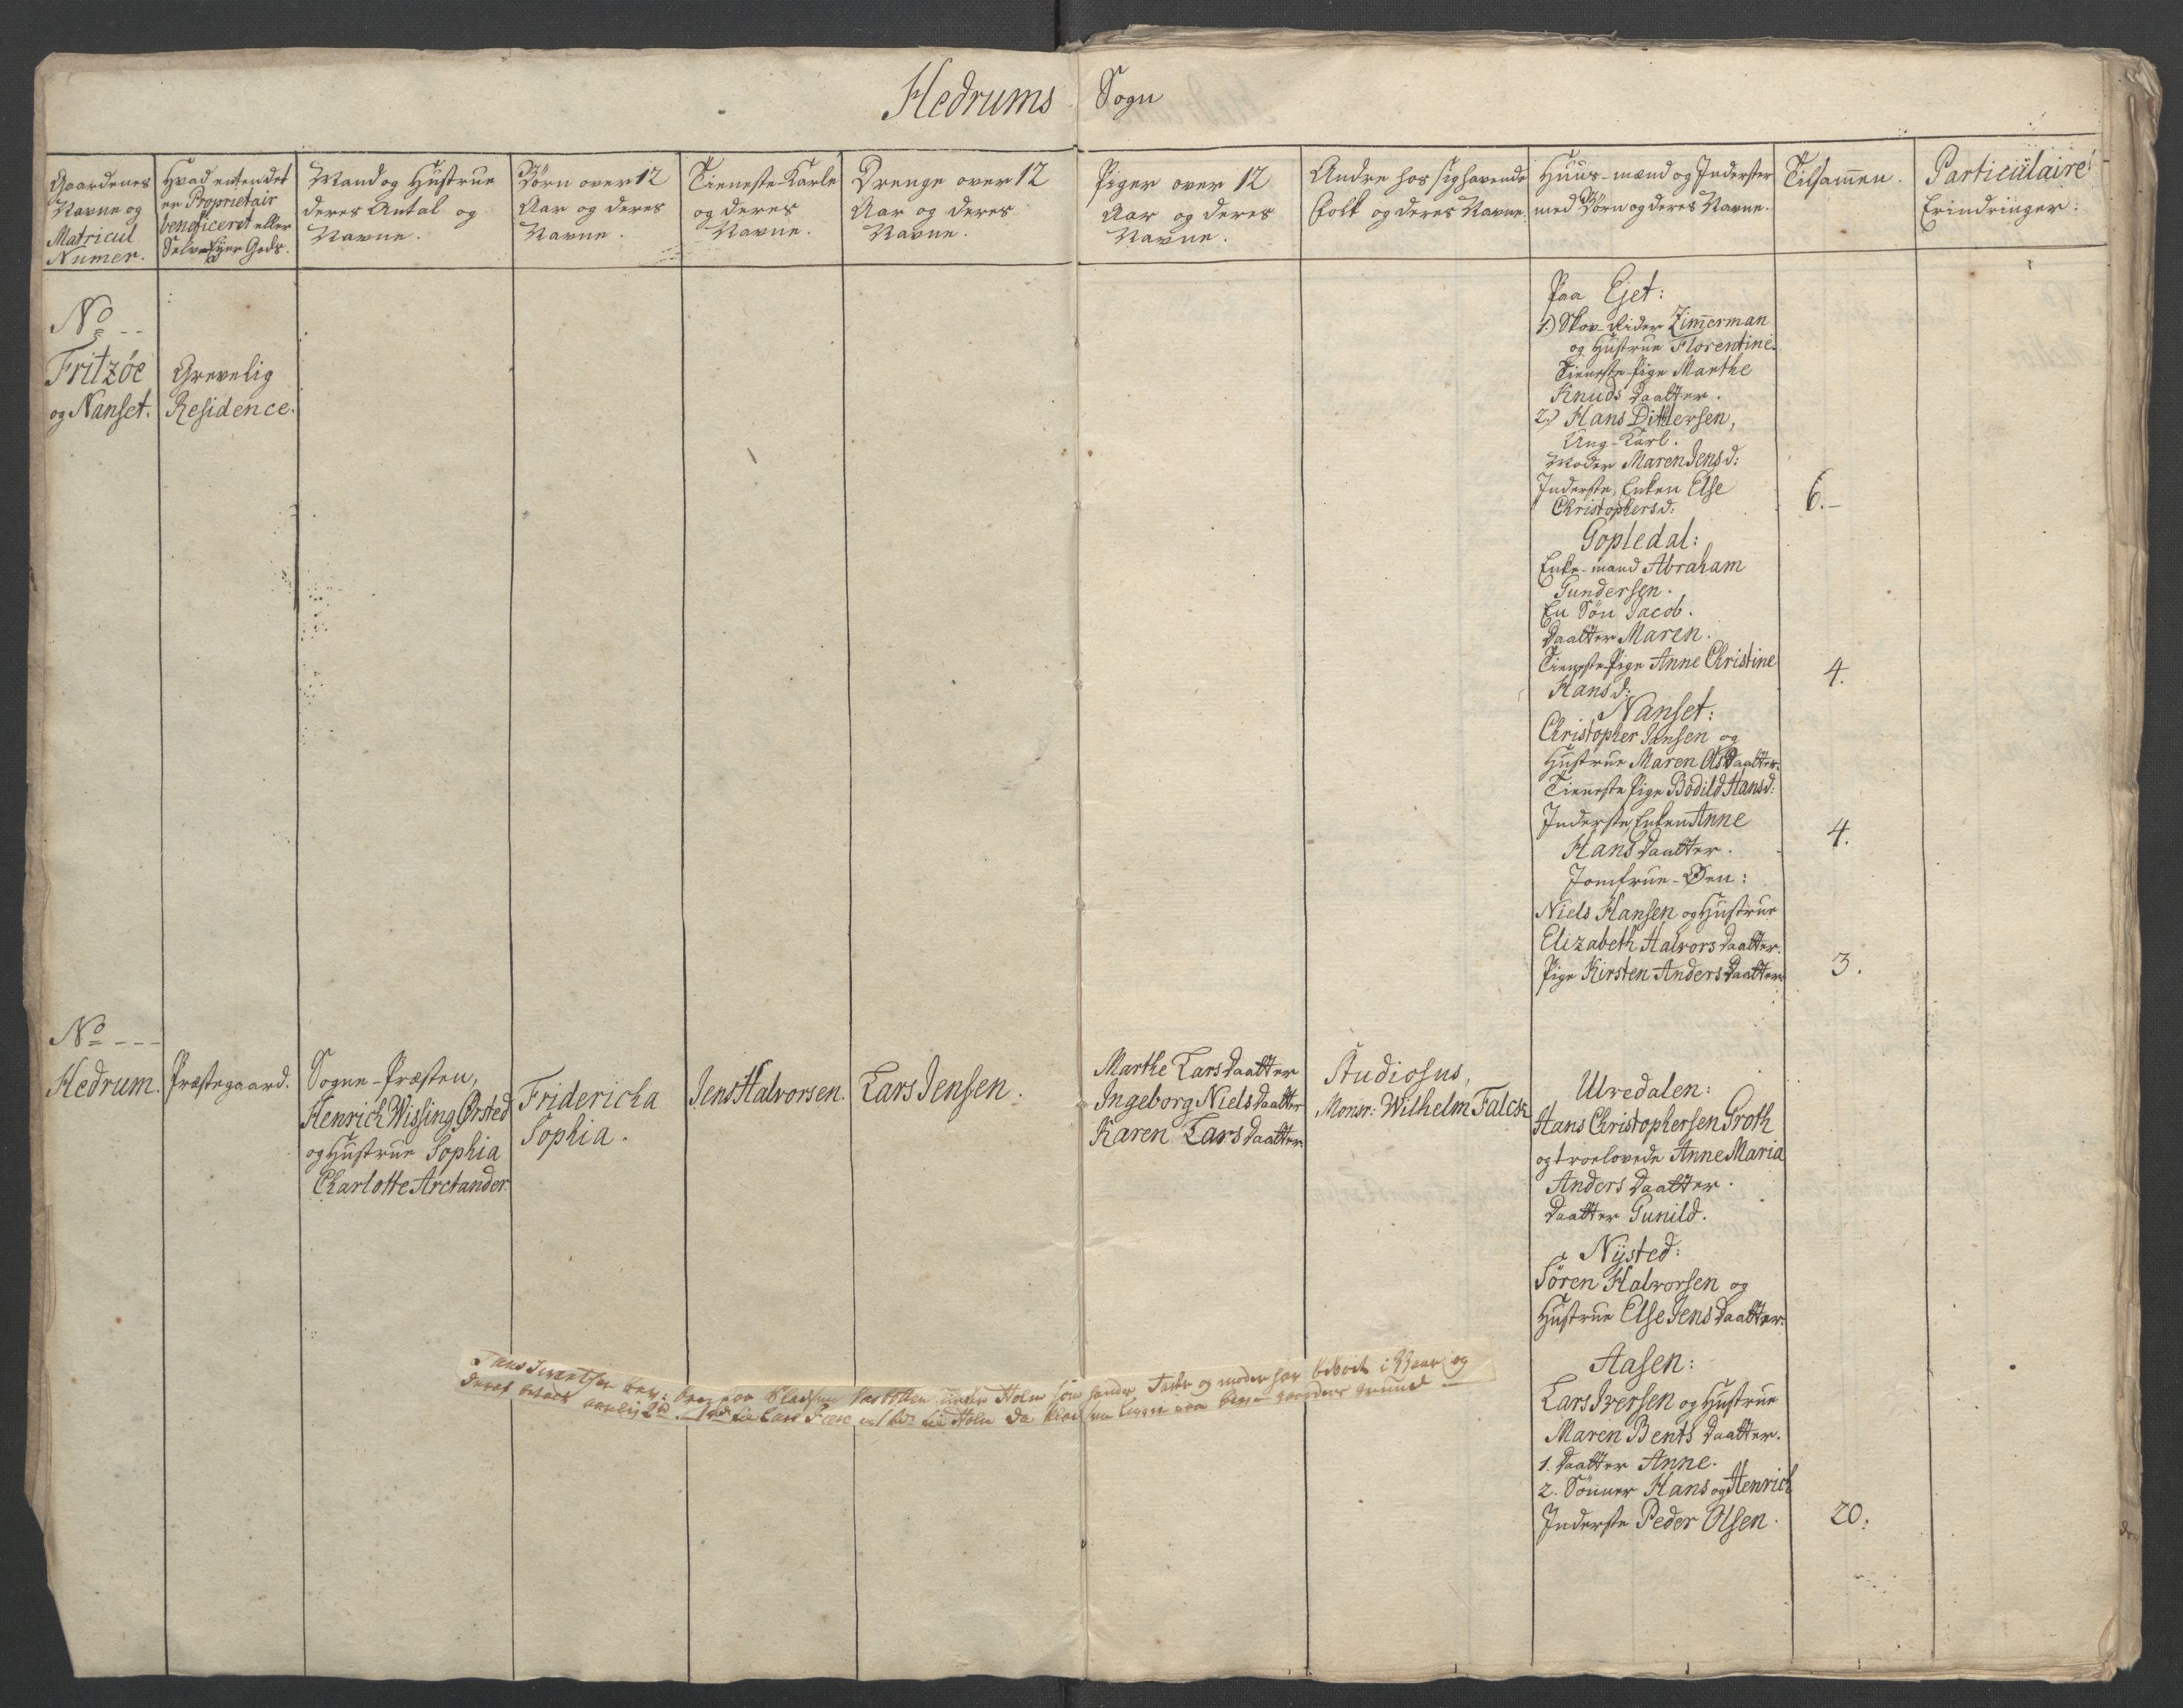 Hedrums Sogn
Gaardenes
Navne og
Matricul
Numer.
Hvad enten det
er Proprietair
beneficeret eller
Selv-Eyer Gods.
Mand og Hustrue
deres Antal og
Navne.
Börn over 12
Aar og deres
Navne.
Tieneste-Karle
og deres
Navne.
Drenge over 12
Aar og deres
Navne.
Piger over 12
Aar og deres
Navne.
Andre hos sig havende
Folk og deres Navne.
Huus-mænd og Inderster
med Börn og deres Navne.
Tilsam̅en.
Particulaire
Erindringer:
No --
Fritzöe
og Nanset.
Grevelig
Residence.
Paa Ejet:
1.) Skov-Rider Zim̅erman
og Hustrue Florentine.
Tieneste-Pige Marthe
Knuds Daatter.
2.) Hans Dittlersen,
Ung-Karl.
Moder Maren Jensd:
Inderste, Enken Else
Christophersd:
6.-
Gopledal:
Enke-mand Abraham
Gundersen.
En Sön Jacob.
Daatter Maren.
Tieneste-Pige Anne Christine
Hansd:
4.
Nanset:
Christopher Jansen og
Hustrue Maren Ols Daatter.
Tieneste Pige Bodild Hansd:
Inderste, Enken Anne
Hans Daatter.
4.
Jomfrue-Øen:
Niels Hansen og Hustrue
Elizabeth Halvors Daatter.
Pige Kirsten Anders Daatter
3.
No ---
Hedrum.
Præstegaard.
Sogne-Præsten,
Henrich Wissing Ørsted
og Hustrue Sophia
Charlotte Arctander.
Fridericha
Sophia.
Jens Halvorsen.
Lars Jensen.
Marthe Lars Daatter
Ingeborg Niels Daatter
Karen Lars Daatter
Studiosus,
Monsr: Wilhelm Falck
Ulvedalen:
Hans Christophersen Groth
og troelovede Anne Maria
Anders Daatter.
Daatter Gunild.
Nÿsted:
Sören Halvorsen og
Hustrue Else Jens Daatter.
Aasen:
Lars Iversen og Hustrue
Maren Bents Daatter.
1. Daatter Anne.
2. Sönner Hans og Henrich
Inderste Peder Olsen.
20.
Pladsen under Holm som hender Fader og moder har beboet i aar og
deraf aarlig til Lars til Holm da grund